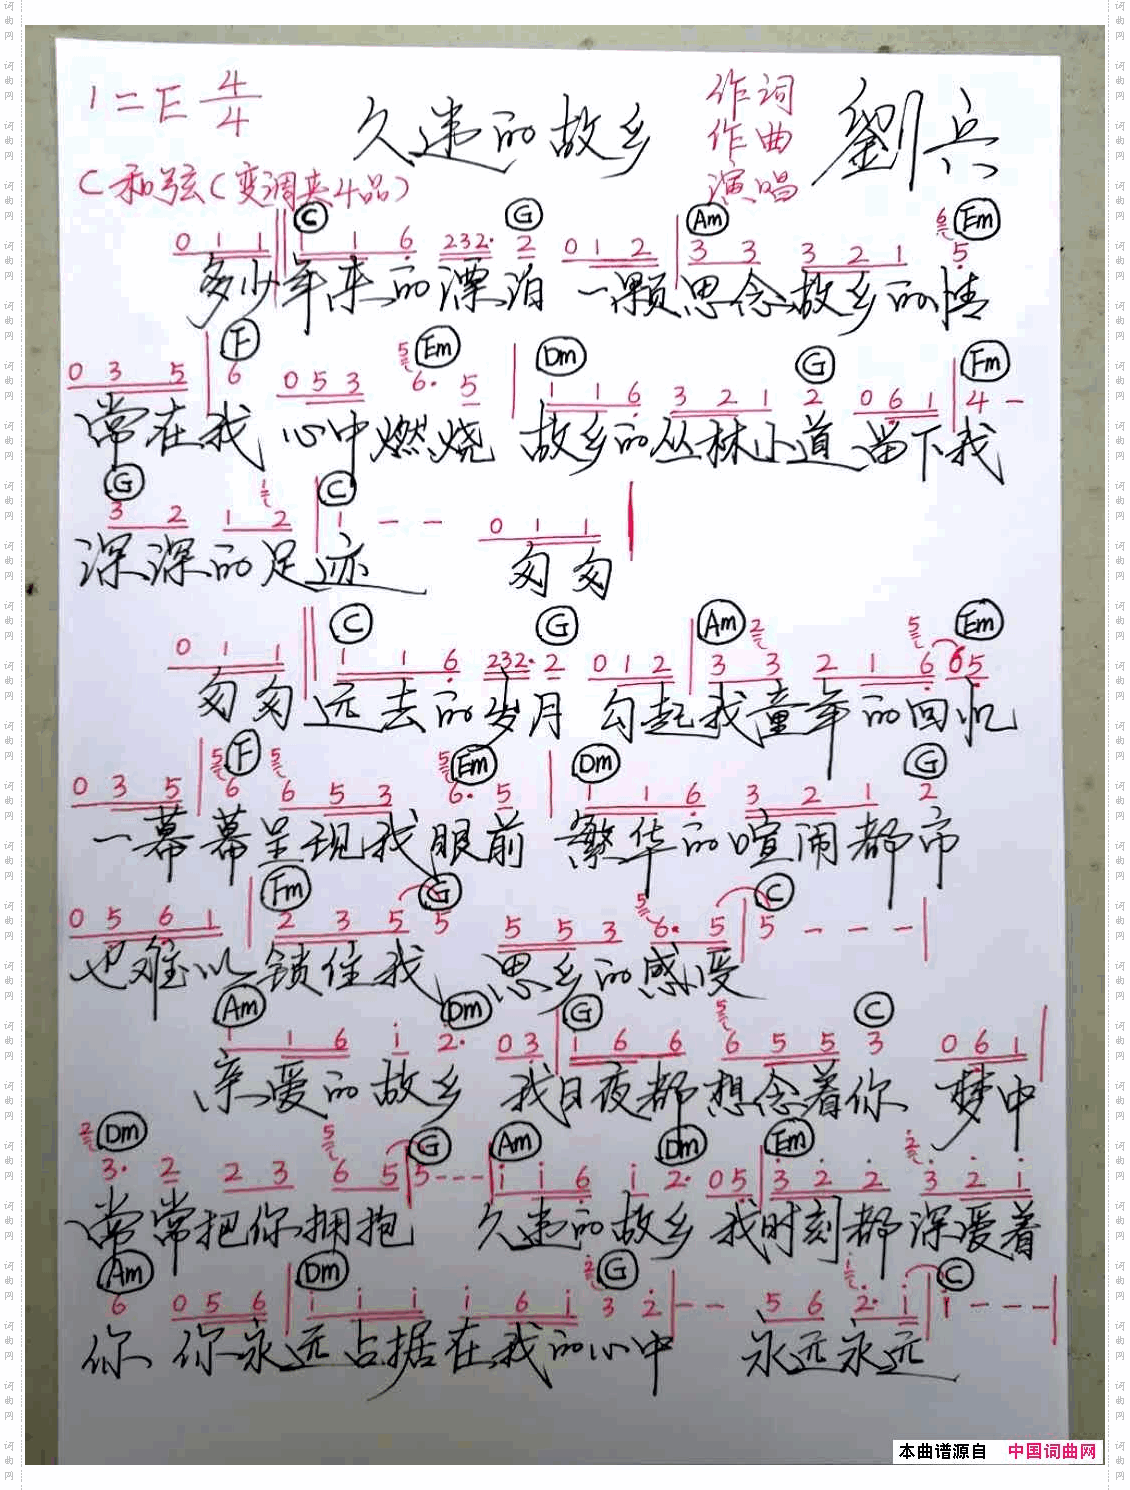 1=E 4/4
久违的故乡
作词
作曲
演唱
劉兵
C和弦(变调夹4品)
C G Am Em
0 1 1 | 1 1 6 232· 2 0 1 2 | 3 3 3 2 1 6 5
多少年来的漂泊 一颗思念故乡的情
F Em Dm G Fm
0 3 5 | 6 0 5 3 5 6· 5 | 1 1 6 3 2 1 2 0 6 1 | 4 -
常在我 心中燃烧 故乡的丛林小道 留下我
G C
3 2 1 1 2 | 1 - - 0 1 1 |
深深的足迹 匆匆
C G Am Em
0 1 1 | 1 1 6 232· 2 0 1 2 | 3 2 3 2 1 5 6 6 5
匆匆远去的岁月 勾起我童年的回忆
F Em Dm G
0 3 5 | 5 6 5 6 5 3 5 6· 5 | 1 1 6 3 2 1 2
一幕幕呈现我眼前 繁华的喧闹都市
Fm G C
0 5 6 1 | 2 3 5 5 5 5 3 5 6· 5 | 5 - - - |
也难以锁住我 思乡的感受
Am Dm G C
1 1 6 i 2· 0 3 | i 6 6 5 6 5 5 3 0 6 1 |
亲爱的故乡 我日夜都想念着你 梦中
Dm G Am Dm Em
2 3· 2 2 3 5 6 5 | 5 - - - | i i 6 i 2· 0 5 | 3 2 2 2 3 2 i
常常把你拥抱 久违的故乡 我时刻都深爱着
Am Dm G C
6 0 5 6 | i i i i 6 i 2 3 2 | - - 5 6 i 2· i | i - - - |
你 你永远占据在我的心中 永远永远
本曲谱源自 中国词曲网